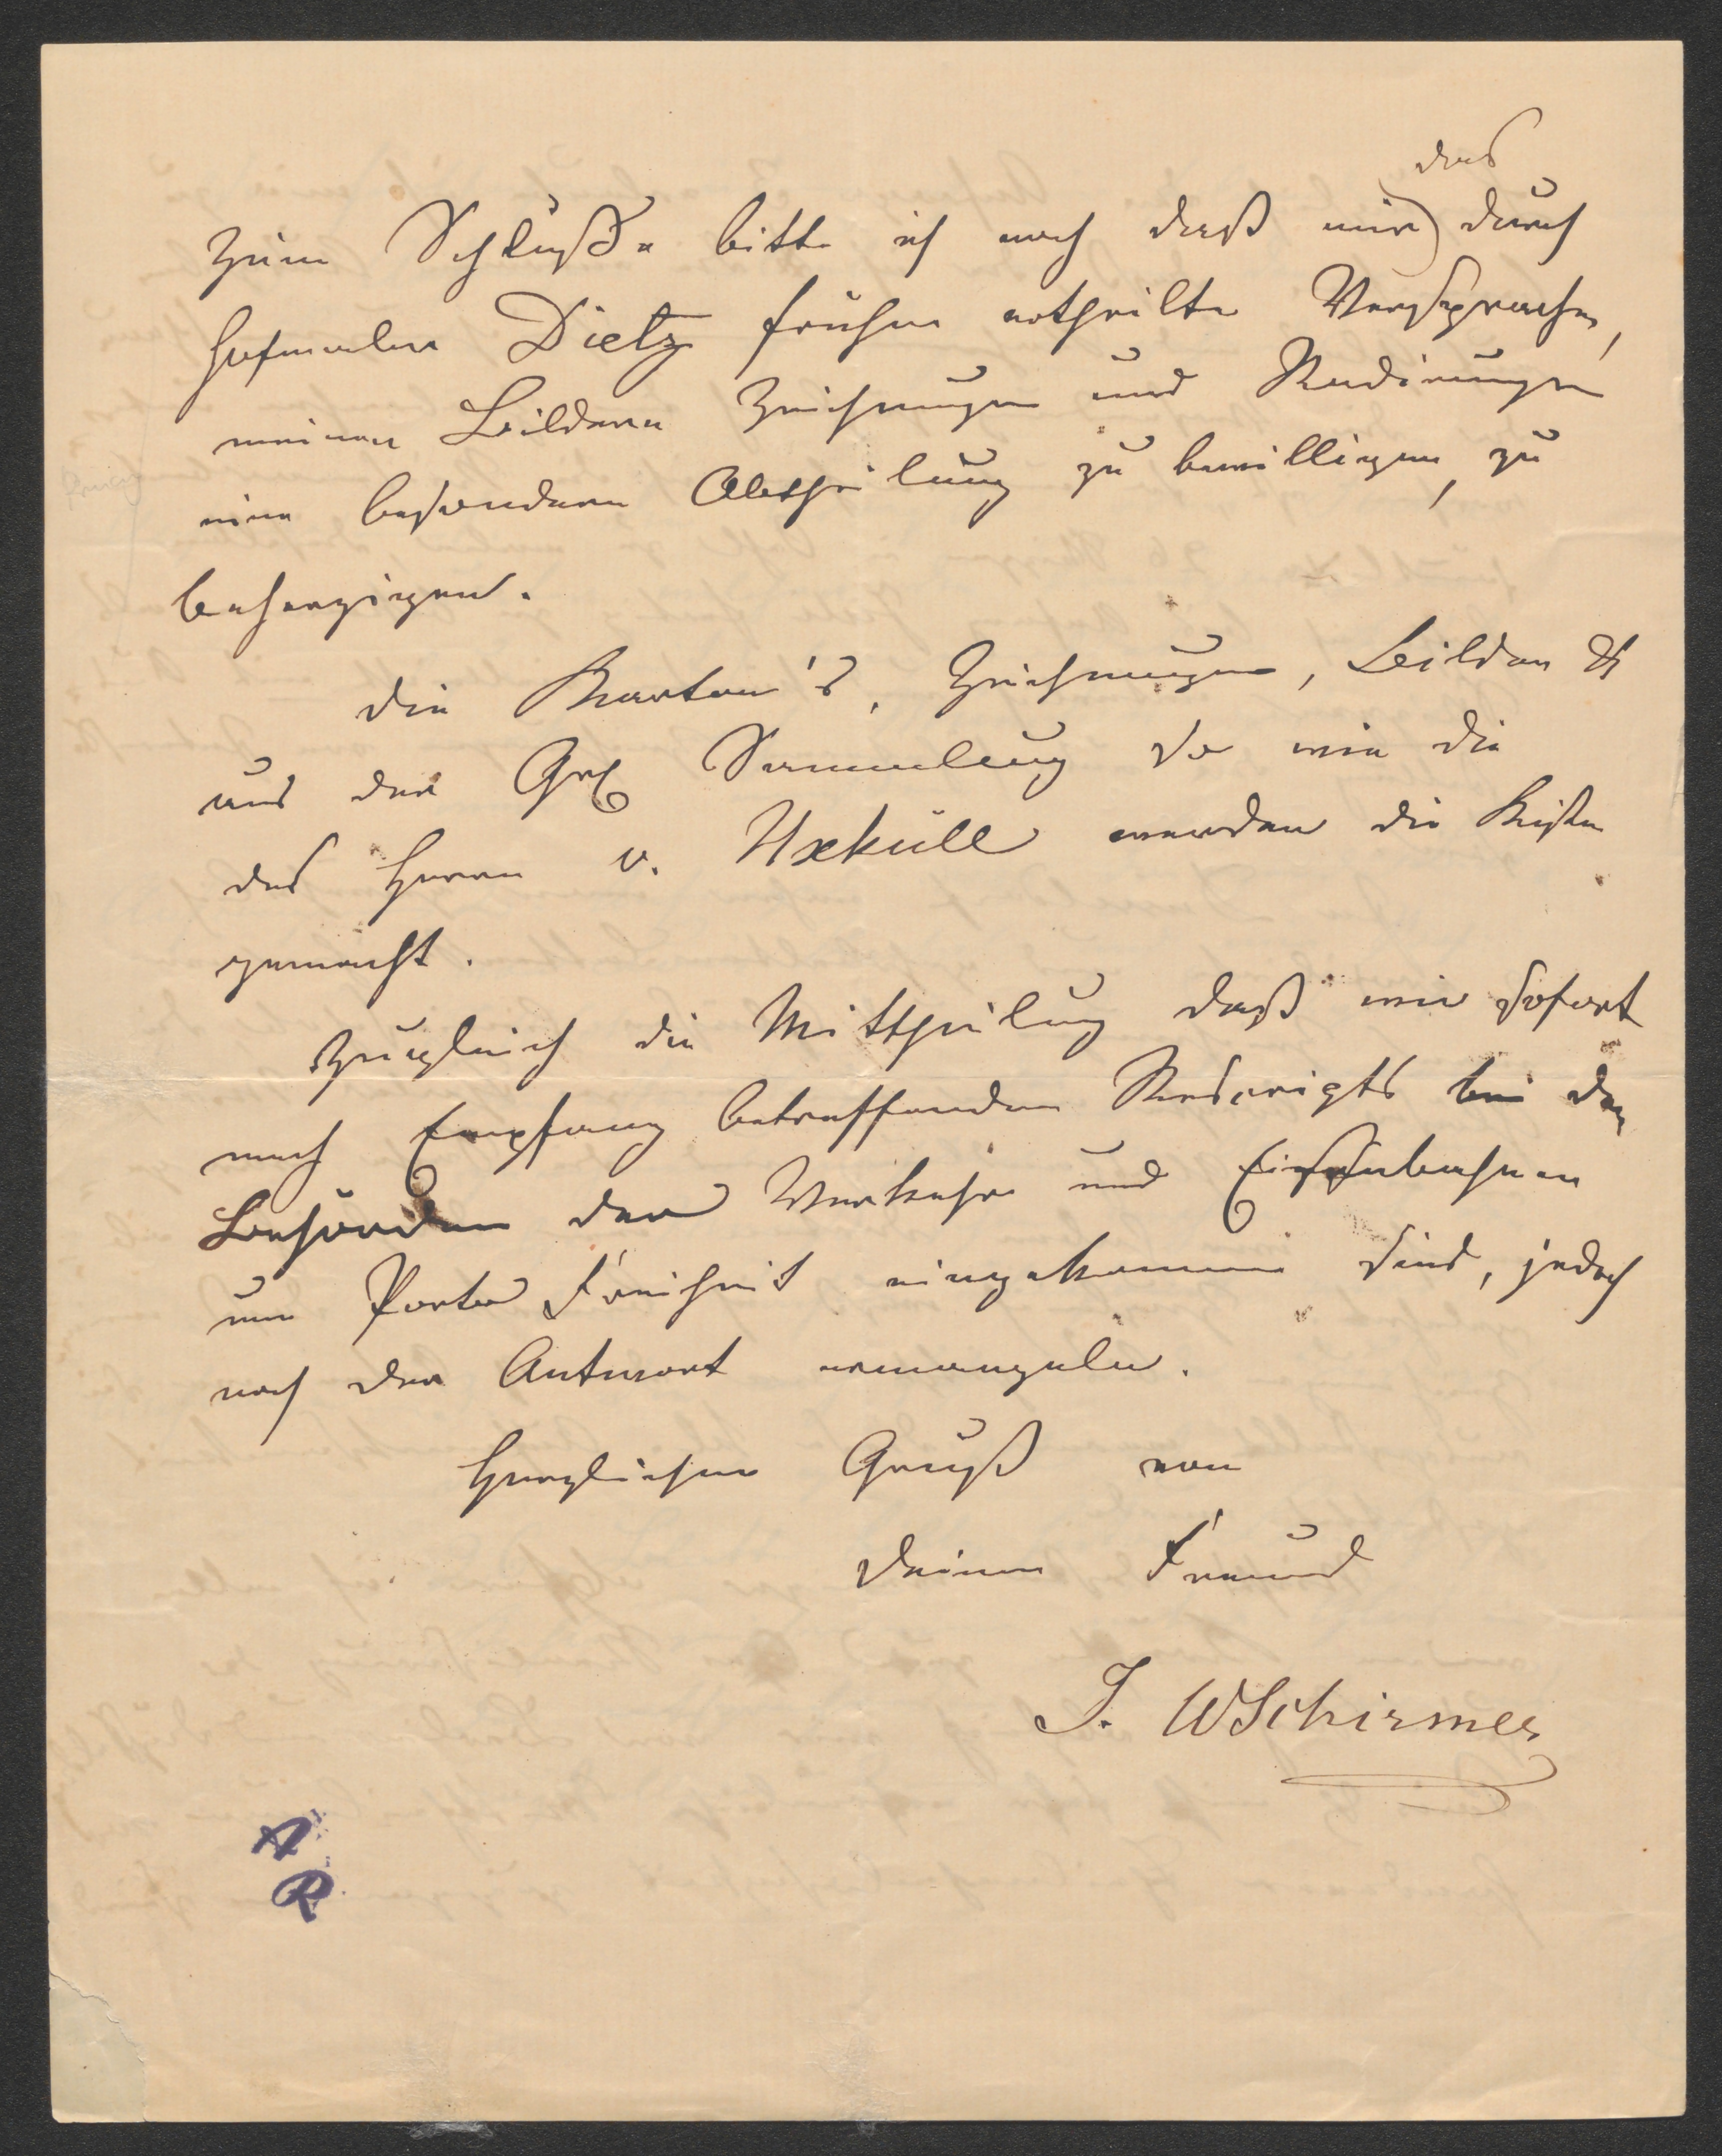 das
Zum Schluße bitte ich noch daß mir durch
Hofmaler Dietz früher ertheilte Versprechen,
meinen Bildern Zeichnungen und Radirungen
eine besondere Abtheilung zu bewilligen, zu
beherzigen.
Die Karton's, Zeichnungen, Bilder &
aus der Grh Sammlung so wie die
des Herrn v. Uxküll werden die Kisten
gemacht.
Zugleich die Mittheilung daß wir sofort
nach Empfang betreffenden Rescripts bei den
Behörden der Verkehr und Eisenbahnen
um Porto Freiheit eingekommen sind, jedoch
noch der Antwort ermangeln.
Herzlichen Gruß von
Deinem Freund
J. W Schirmer
A
R